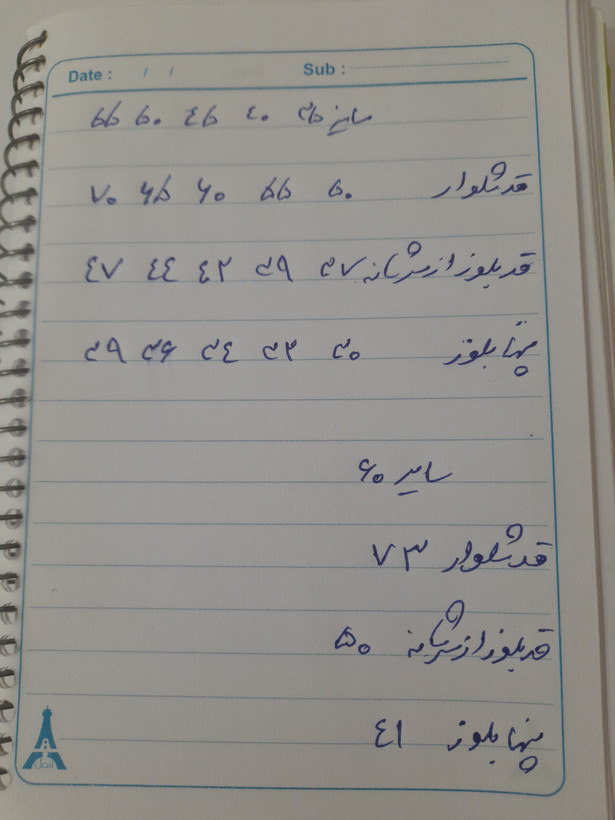 Date : / / Sub :
سایز ۳۵ ۴۰ ۴۵ ۵۰ ۵۵
قد شلوار ۵۰ ۵۵ ۶۰ ۶۵ ۷۰
قد بلوز از سرشانه ۳۷ ۳۹ ۴۲ ۴۴ ۴۷
پهنا بلوز ۳۰ ۳۲ ۳۴ ۳۶ ۳۹
سایز ۶۰
قد شلوار ۷۳
قد بلوز از سرشانه ۵۰
پهنا بلوز ۴۱